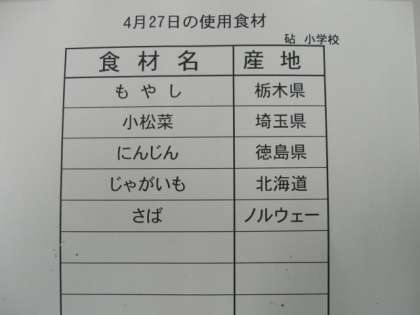 4月27日の使用食材
砧 小学校
食材名 産地
もやし 栃木県
小松菜 埼玉県
にんじん 徳島県
じゃがいも 北海道
さば ノルウェー